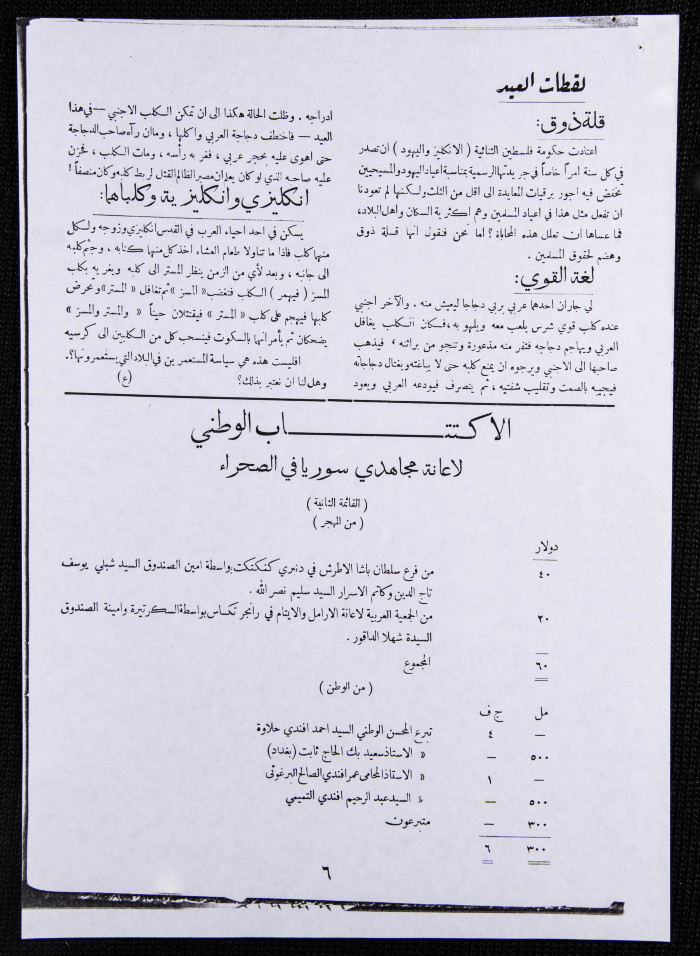 لقطات العيد
قلة ذوق:
اعتادت حكومة فلسطين الثنائية (الانكليز واليهود) ان تصدر
في كل سنة امراً خاصاً في جريدتها الرسمية بمناسبة اعياد اليهود والمسيحيين
تخفض فيه اجور برقيات المعايدة الى اقل من الثلث ولكنها لم تعودنا
ان تفعل مثل هذا في اعياد المسلمين وهم اكثرية السكان واهل البلاد،
فما عساها ان تعلل هذه المحاباة؟ اما نحن فنقول انها قلة ذوق
وهضم لحقوق المسلمين.
لغة القوي:
لي جاران احدهما عربي يربي دجاجا ليعيش منه. والآخر اجنبي
عنده كلب قوي شرس يلعب معه ويلهو به، فكان الكلب يغافل
العربي ويهاجم دجاجه فتفر منه مذعورة وتنجو من براثنه، فيذهب
صاحبها الى الاجنبي ويرجوه ان يمنع كلبه حتى لا يباغته ويغتال دجاجاته
فيجيبه بالصمت وتقليب شفتيه، ثم ينصرف فيودعه العربي ويعود
ادراجه. وظلت الحالة هكذا الى ان تمكن الكلب الاجنبي — في هذا
العيد — فاختطف دجاجة العربي واكلها، وما ان رآه صاحب الدجاجة
حتى اهوى عليه بحجر عربي، ففر به رأسه، ومات الكلب، فحزن
عليه صاحبه الذي لو كان يعلم ان مصير الظالم القتل لربط كلبه وكان منصفاً!
انكليزي وانكليزية وكلباهما:
يسكن في احد احياء العرب في القدس انكليزي وزوجه ولكل
منهما كلب فاذا ما تناولا طعام العشاء اخذ كل منهما كتابه، وجثم كلبه
الى جانبه، وبعد لأي من الزمن ينظر المستر الى كلبه ويغريه بكلب
المسز (فيهمر) الكلب فتغضب «المسز» ثم تغافل «المستر» وتحرض
كلبها فيهجم على كلب «المستر» فيقتتلان حيناً «والمستر والمسز»
يضحكان ثم يأمرانهما بالسكوت فينسحب كل من الكلبين الى كرسيه
افليست هذه هي سياسة المستعمرين في البلاد التي يستعمرونها؟.
وهل لنا ان نعتبر بذلك؟ (ع)
الاكتتاب الوطني
لاعانة مجاهدي سوريا في الصحراء
(القائمة الثانية)
(من المهجر)
دولار
٤٠ من فرع سلطان باشا الاطرش في دنبري كنكتكت بواسطة امين الصندوق السيد شبلي يوسف
تاج الدين وكاتم الاسرار السيد سليم نصر الله.
٢٠ من الجمعية العربية لاعانة الارامل والايتام في رانجر تكساس بواسطة السكرتيرة وامينة الصندوق
السيدة شهلا الداقور.
٦٠ المجموع
(من الوطن)
مل ج ف
— ٤ تبرع المحسن الوطني السيد احمد افندي حلاوة
٥٠٠ — « الاستاذ سعيد بك الحاج ثابت (بغداد)
— ١ « الاستاذ المحامي عمر افندي الصالح البرغوثي
٥٠٠ — « السيد عبد الرحيم افندي التميمي
٣٠٠ — متبرعون
٣٠٠ ٦
٦